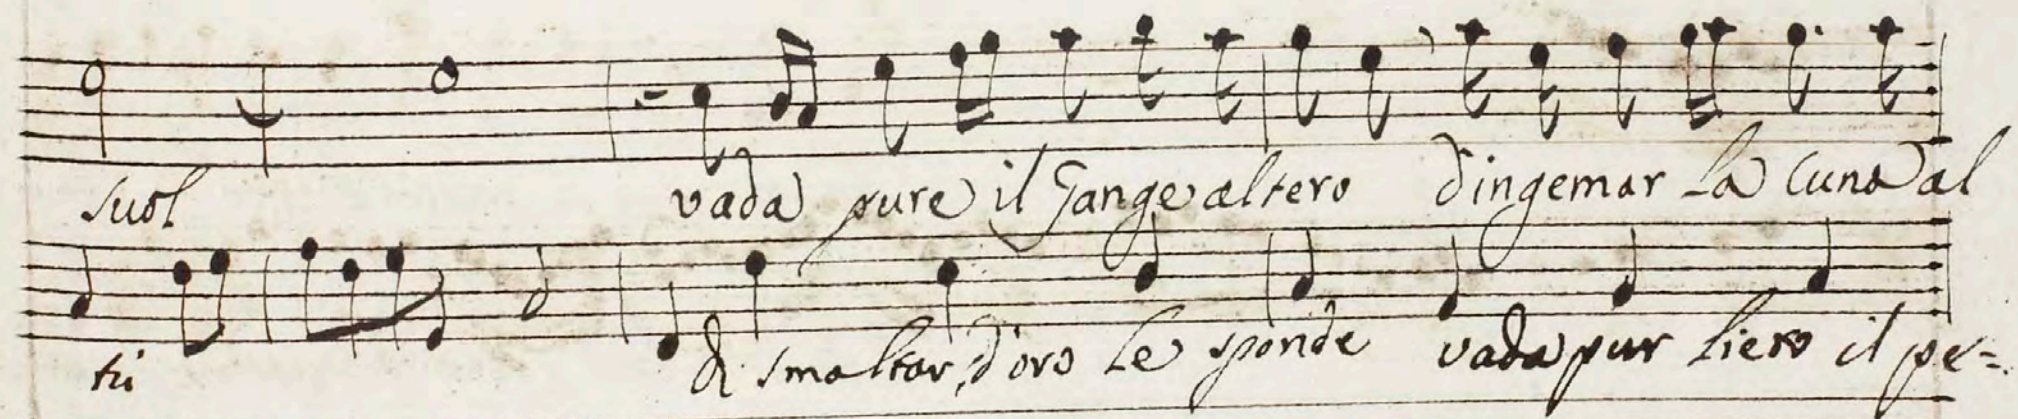 suol vada pure il Gange altero d'ingemar la cuna al
tu di smaltar d'oro le sponde vada pur liero il pe=